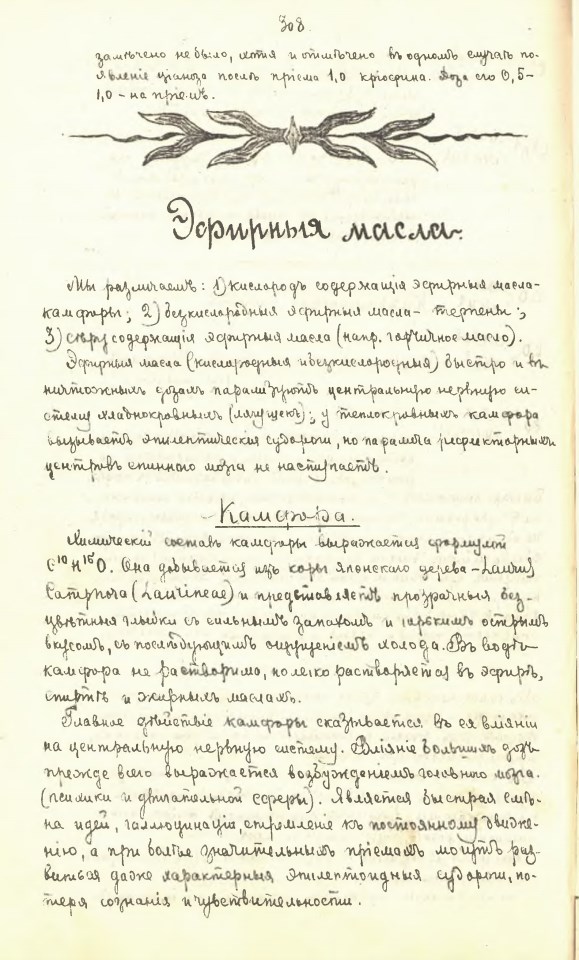 308.
замѣчено не было, хотя и отмѣчено въ одномъ случаѣ по-
явленіе ціаноза послѣ пріема 1,0 кріофина. Доза его 0,5–
1,0 – на пріемъ.
Эфирныя масла.
Мы различаемъ: 1) кислородъ содержащія эфирныя масла-
камфоры; 2) безкислородныя эфирныя масла- терпены;
3) сѣру содержащія эфирныя масла (напр. горчичное масло).
Эфирныя масла (кислородныя и безкислородныя) быстро и въ
ничтожныхъ дозахъ парализуютъ центральную нервную си-
стему хладнокровныхъ (лягушекъ); у теплокровныхъ камфора
вызываетъ эпилептическія судороги, но паралича рефлекторныхъ
центровъ спинного мозга не наступаетъ.
Камфора.
Химическій составъ камфоры выражается формулой
C¹⁰H¹⁶O. Она добывается изъ коры японскаго дерева – Laurus
Camphora (Laurineae) и представляетъ прозрачныя без-
цвѣтныя глыбки съ сильнымъ запахомъ и горькимъ острымъ
вкусомъ, съ послѣдующимъ ощущеніемъ холода. Въ водѣ
камфора не растворима, но легко растворяется въ эфирѣ,
спиртѣ и жирныхъ маслахъ.
Главное дѣйствіе камфоры сказывается въ ея вліяніи
на центральную нервную систему. Вліяніе большихъ дозъ
прежде всего выражается возбужденіемъ головного мозга.
(психики и двигательной сферы). Является быстрая смѣ-
на идей, галлюцинаціи, стремленіе къ постоянному движе-
нію, а при болѣе значительныхъ пріемахъ могутъ раз-
виться даже характерныя эпилептоидныя судороги, по-
теря сознанія и чувствительности.